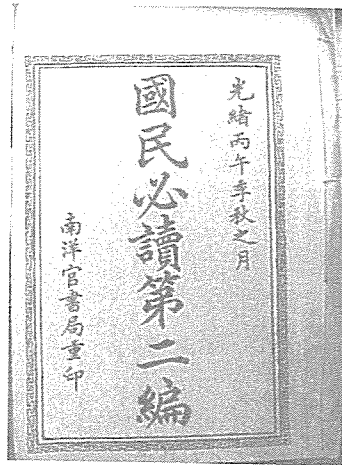 光緒丙午季秋之月
國民必讀第二編
南洋官書局重印